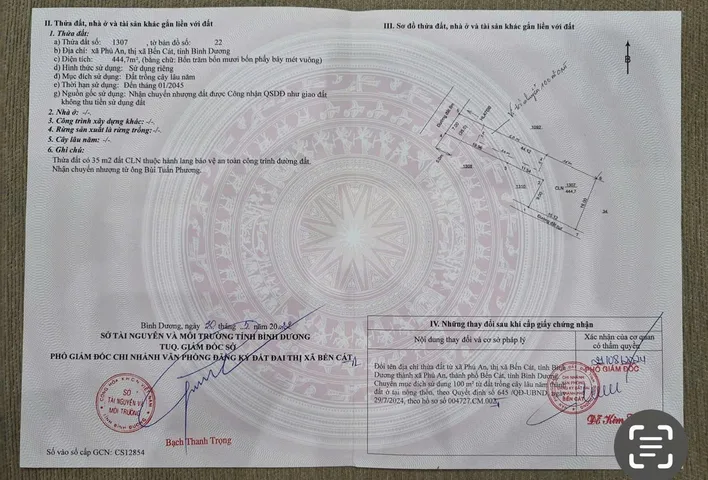 II. Thửa đất, nhà ở và tài sản khác gắn liền với đất
1. Thửa đất:
a) Thửa đất số: 1307 , tờ bản đồ số: 22
b) Địa chỉ: xã Phú An, thị xã Bến Cát, tỉnh Bình Dương
c) Diện tích: 444,7m², (bằng chữ: Bốn trăm bốn mươi bốn phẩy bảy mét vuông)
d) Hình thức sử dụng: Sử dụng riêng
đ) Mục đích sử dụng: Đất trồng cây lâu năm
e) Thời hạn sử dụng: Đến tháng 01/2045
g) Nguồn gốc sử dụng: Nhận chuyển nhượng đất được Công nhận QSDĐ như giao đất
không thu tiền sử dụng đất
2. Nhà ở: -/-
3. Công trình xây dựng khác: -/-
4. Rừng sản xuất là rừng trồng: -/-
5. Cây lâu năm: -/-
6. Ghi chú:
Thửa đất có 35 m2 đất CLN thuộc hành lang bảo vệ an toàn công trình đường đất.
Nhận chuyển nhượng từ ông Bùi Tuấn Phương.
Bình Dương, ngày 20 tháng 5 năm 20
SỞ TÀI NGUYÊN VÀ MÔI TRƯỜNG TỈNH BÌNH DƯƠNG
TUQ. GIÁM ĐỐC SỞ
PHÓ GIÁM ĐỐC CHI NHÁNH VĂN PHÒNG ĐĂNG KÝ ĐẤT ĐAI THỊ XÃ BẾN CÁT
SỞ
TÀI NGUYÊN VÀ
MÔI TRƯỜNG
Bạch Thanh Trọng
Số vào sổ cấp GCN: CS12854
III. Sơ đồ thửa đất, nhà ở và tài sản khác gắn liền với đất
B
Vị trí chuyển 100 m² đất
Đường đất
HLATĐB
7.00
1308
1310
CLN 1307
444.7
9.00
16.00
Đường đất
IV. Những thay đổi sau khi cấp giấy chứng nhận
Nội dung thay đổi và cơ sở pháp lý
Xác nhận của cơ quan
có thẩm quyền
Đổi tên địa chỉ thửa đất từ xã Phú An, thị xã Bến Cát, tỉnh Bình
Dương thành xã Phú An, thành phố Bến Cát, tỉnh Bình Dương.
Chuyển mục đích sử dụng 100 m² từ đất trồng cây lâu năm thành
đất ở tại nông thôn, theo Quyết định số 645 /QĐ-UBND, ngày
29/7/2024, theo hồ sơ số 004727.CM.002
PHÓ GIÁM ĐỐC
CHI NHÁNH
BẾN CÁT